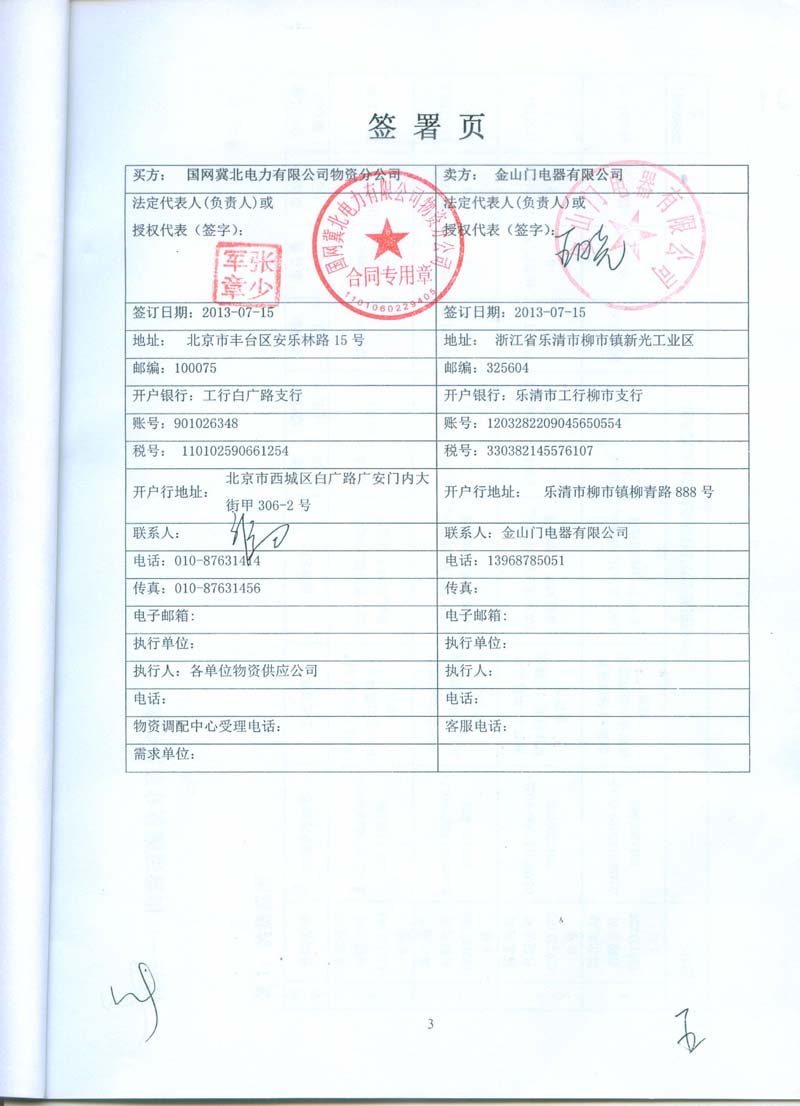 签署页
买方： 国网冀北电力有限公司物资分公司
卖方： 金山门电器有限公司
法定代表人(负责人)或
授权代表（签字）：
法定代表人(负责人)或
授权代表（签字）：
国网冀北电力有限公司物资分公司
合同专用章
1101060229405
张少
军章
金山门电器有限公司
签订日期：2013-07-15
签订日期：2013-07-15
地址： 北京市丰台区安乐林路15号
地址： 浙江省乐清市柳市镇新光工业区
邮编：100075
邮编：325604
开户银行：工行白广路支行
开户银行：乐清市工行柳市支行
账号：901026348
账号：1203282209045650554
税号： 110102590661254
税号：330382145576107
开户行地址：
北京市西城区白广路广安门内大
街甲306-2号
开户行地址： 乐清市柳市镇柳青路888号
联系人：
联系人：金山门电器有限公司
电话：010-87631414
电话：13968785051
传真：010-87631456
传真：
电子邮箱：
电子邮箱：
执行单位：
执行单位：
执行人：各单位物资供应公司
执行人：
电话：
电话：
物资调配中心受理电话：
客服电话：
需求单位：
3